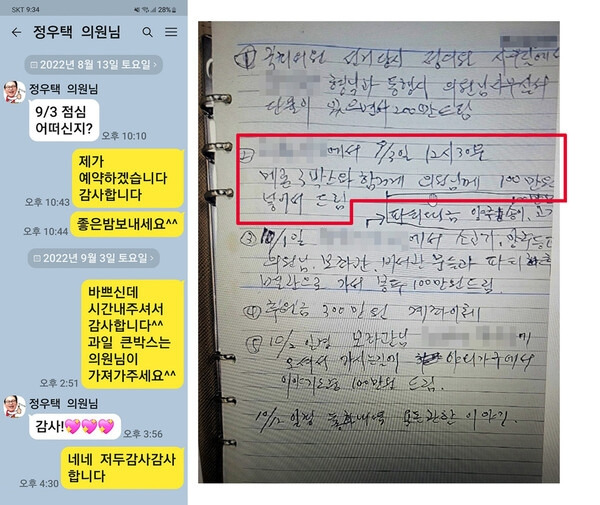 SKT 9:34
28%
정우택 의원님
2022년 8월 13일 토요일
정우택 의원님
9/3 점심
어떠신지?
오후 10:10
제가
예약하겠습니다
감사합니다
오후 10:43
좋은밤보내세요^^
오후 10:44
2022년 9월 3일 토요일
바쁘신데
시간내주셔서
감사합니다^^
과일 큰박스는
의원님이
가져가주세요^^
오후 2:51
정우택 의원님
감사!💖💖💖
오후 3:56
네네 저두감사감사
합니다
오후 4:30
① 국회의원 선거 당시 정우택 사무실에
형님과 동행시 의원님 사무실서
단둘이 있으면서 200만 드림
② 에서 9/3일 12시30분
메론 3박스와 함께 의원님께 100만원
넣어서 드림
③ 10/1일 에서 소고기,
의원님, 보좌관, 비서관 분들과 파티
가서 봉투 100만원 드림.
④ 후원금 300만원 계좌이체
⑤ 10/2일경 보좌관님 에
오셔서 가시는길에
이야기도중 100만원 드림.
10/12일경 통화내역